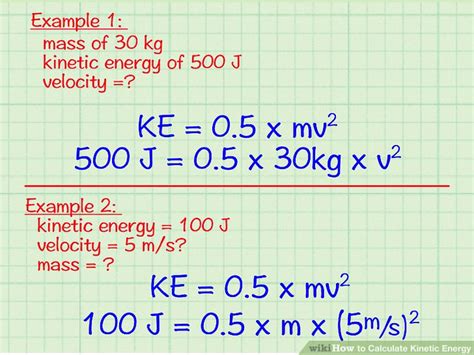 Example 1:
mass of 30 kg
kinetic energy of 500 J
velocity =?
KE = 0.5 x mv²
500 J = 0.5 x 30kg x v²
Example 2:
kinetic energy = 100 J
velocity = 5 m/s?
mass = ?
KE = 0.5 x mv²
100 J = 0.5 x m x (5m/s)²
wikiHow to Calculate Kinetic Energy